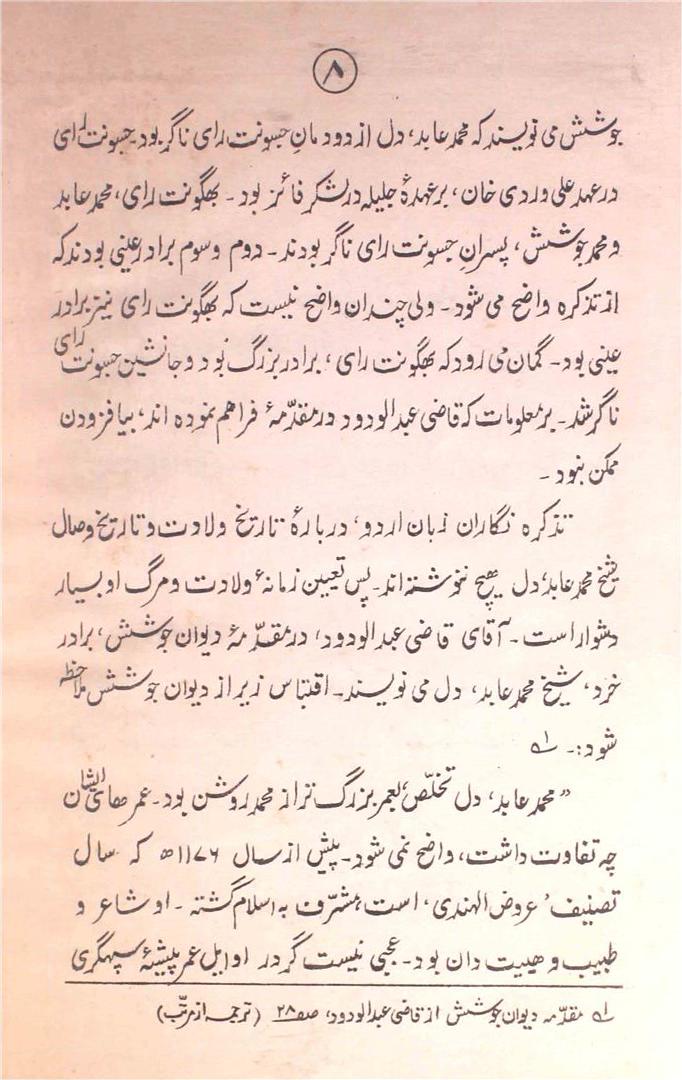 ۸
جوشش می نویسند که محمد عابد، دل از دودمانِ جسونت رای ناگر بود۔ جسونت رای
در عهد علی وردی خان، بر عهدۀ جلیله در لشکر فائز بود۔ بھگونت رای، محمد عابد
و محمد جوشش، پسرانِ جسونت رای ناگر بودند۔ دوم و سوم برادر عینی بودند که
از تذکره واضح می شود۔ ولی چندان واضح نیست که بھگونت رای نیز برادر
عینی بود۔ گمان می رود که بھگونت رای، برادر بزرگ بود و جانشین جسونت رای
ناگر شد۔ بر معلومات که قاضی عبدالودود در مقدّمۂ فراهم نموده اند، بیافزودن
ممکن نبود۔
تذکره نگاران زبان اردو، دربارۀ تاریخ ولادت و تاریخ وصال
شیخ محمد عابد، دل هیچ ننوشته اند۔ پس تعیین زمانۂ ولادت و مرگ او بسیار
دشوار است۔ آقای قاضی عبدالودود، در مقدّمۂ دیوان جوشش، برادر
خرد، شیخ محمد عابد، دل می نویسند۔ اقتباس زیر از دیوان جوشش ملاحظه
شود:۔ ؂۱
”محمد عابد، دل تخلّص، بعمر بزرگ تر از محمد روشن بود۔ عمر های ایشان
چه تفاوت داشت، واضح نمی شود۔ پیش از سال ۱۱۷۶ھ که سال
تصنیف ’عروض الهندی‘ است، مشرّف به اسلام گشته۔ او شاعر و
طبیب و هیبت دان بود۔ عجبی نیست گر در اوایل عمر پیشۂ سپهگری
؂۱ مقدّمہ دیوان جوشش از قاضی عبدالودود، صفہ ۲۸ (ترجمہ از مرتّب)